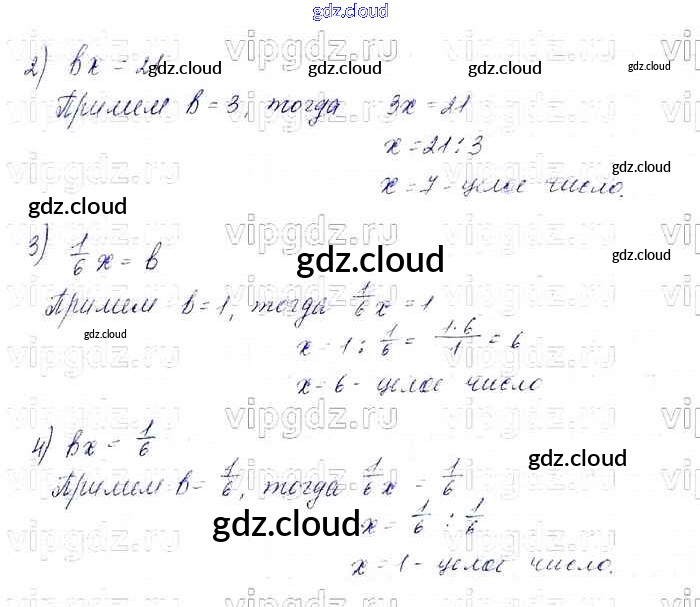 gdz.cloud
2) вх = 21
gdz.cloud gdz.cloud gdz.cloud gdz.cloud
Примем в = 3, тогда 3х = 21
х = 21 : 3
gdz.cloud
х = 7 - целое число.
gdz.cloud
3) 1/6 х = в
gdz.cloud gdz.cloud
Примем в = 1, тогда 1/6 х = 1
gdz.cloud
х = 1 : 1/6 = 1·6/1 = 6
х = 6 - целое число
4) вх = 1/6
gdz.cloud
Примем в = 1/6, тогда 1/6 х = 1/6
gdz.cloud
х = 1/6 : 1/6
х = 1 - целое число.
vipgdz.ru vipgdz.ru vipgdz.ru